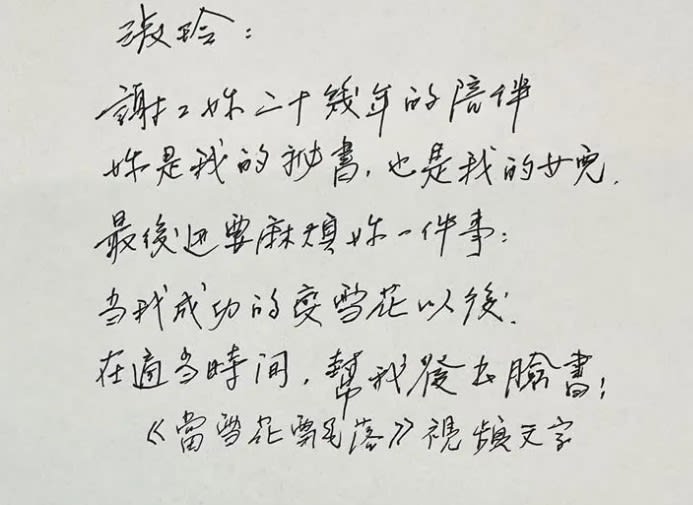 淑玲：
謝謝妳二十幾年的陪伴
妳是我的秘書，也是我的女兒．
最後还要麻煩妳一件事：
当我成功的变雪花以後．
在適当時间，幫我發出臉書；
《當雪花飄落》視頻文字